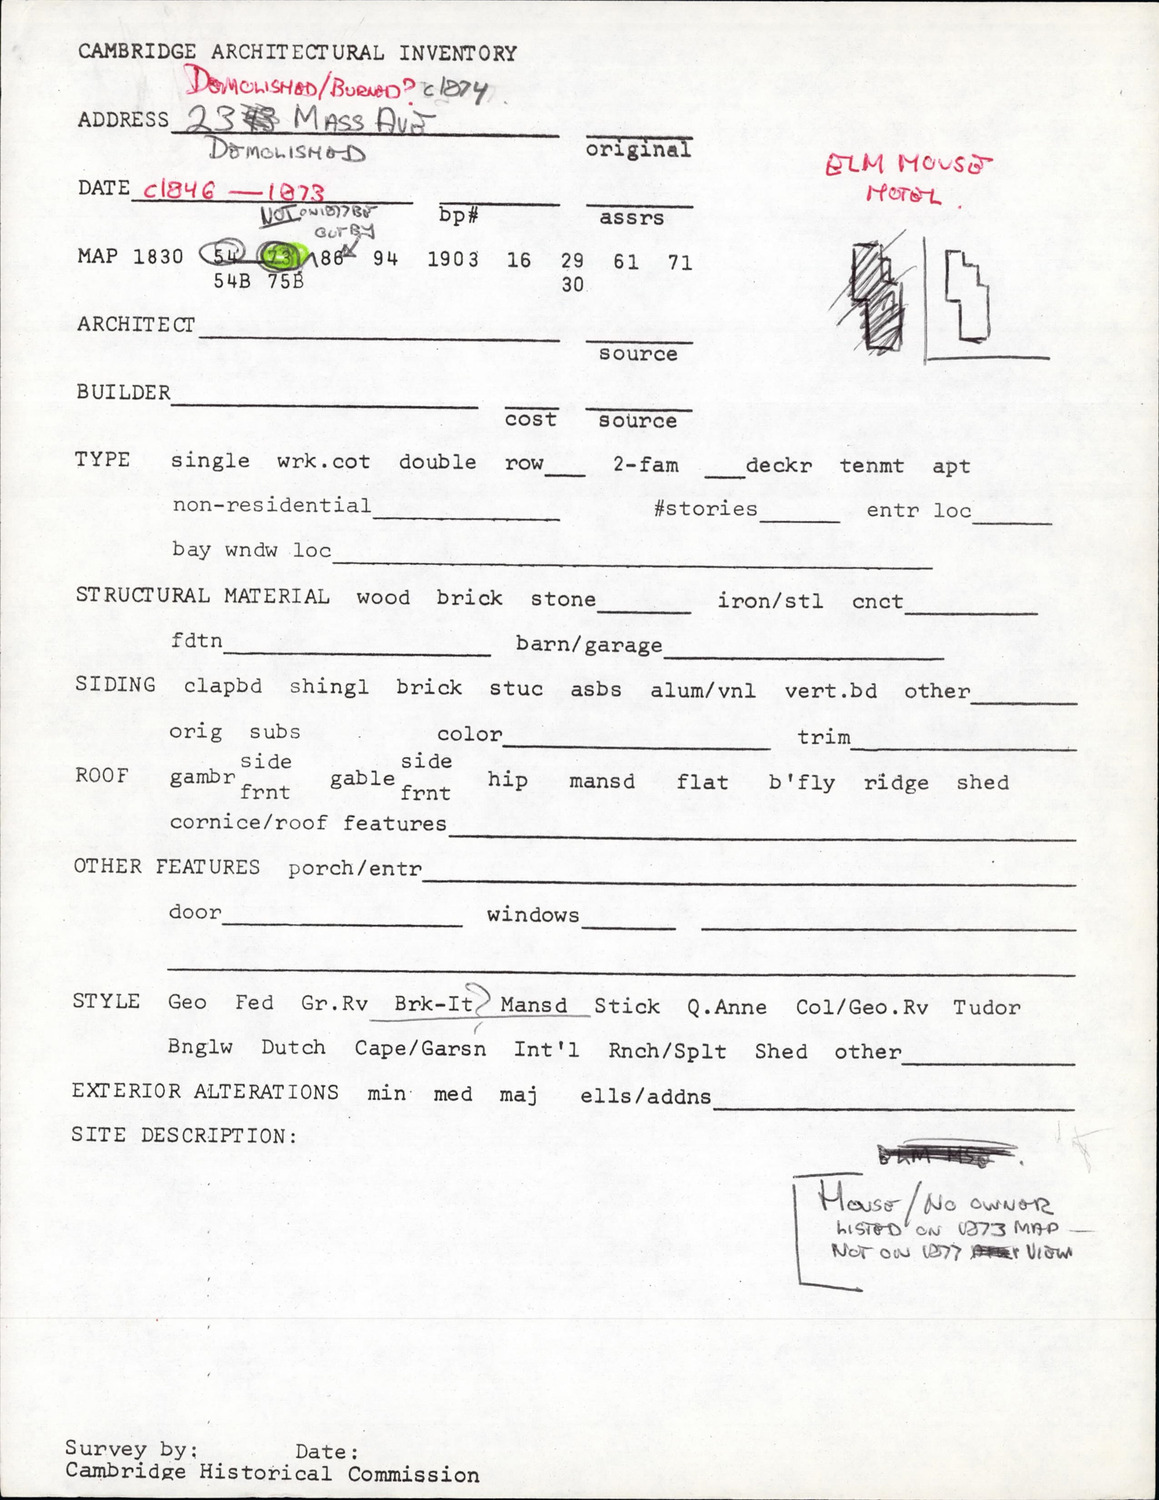 CAMBRIDGE ARCHITECTURAL INVENTORY
DEMOLISHED/BURNED? c1874
ADDRESS 23 MASS AVE
DEMOLISHED
original
ELM HOUSE
HOTEL.
DATE c1846 — 1873
bp# assrs
NOT ON 1877 BE
OUT BY
MAP 1830 54 73 86 94 1903 16 29 61 71
54B 75B 30
ARCHITECT
source
BUILDER
cost source
TYPE single wrk.cot double row 2-fam deckr tenmt apt
non-residential #stories entr loc
bay wndw loc
STRUCTURAL MATERIAL wood brick stone iron/stl cnct
fdtn barn/garage
SIDING clapbd shingl brick stuc asbs alum/vnl vert.bd other
orig subs color trim
side side
ROOF gambr gable hip mansd flat b'fly ridge shed
frnt frnt
cornice/roof features
OTHER FEATURES porch/entr
door windows
STYLE Geo Fed Gr.Rv Brk-It? Mansd Stick Q.Anne Col/Geo.Rv Tudor
Bnglw Dutch Cape/Garsn Int'l Rnch/Splt Shed other
EXTERIOR ALTERATIONS min med maj ells/addns
SITE DESCRIPTION:
ELM HSE.
HOUSE/NO OWNER
LISTED ON 1873 MAP —
NOT ON 1877 VIEW
Survey by: Date:
Cambridge Historical Commission